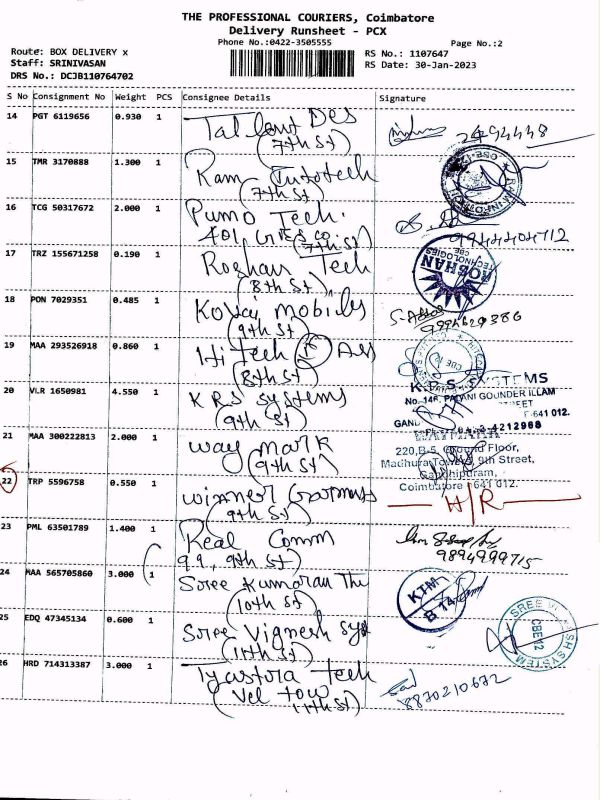 THE PROFESSIONAL COURIERS, Coimbatore
Delivery Runsheet - PCX
Phone No.:0422-3505555
Page No.:2
Route: BOX DELIVERY x
Staff: SRINIVASAN
DRS No.: DCJB110764702
RS No.: 1107647
RS Date: 30-Jan-2023
S No Consignment No Weight PCS Consignee Details Signature
14 PGT 6119656 0.930 1 Tallent Des
(7th St)
2494448
15 TMR 3170888 1.300 1 Ram Infotech
(7th St)
16 TCG 50317672 2.000 1 Pumo Tech.
401, (7th St)
9944404712
17 TRZ 155671258 0.190 1 Roshan Tech
(8th St)
ROSHAN
TECHNOLOGIES
CBE
18 PON 7029351 0.485 1 Kovai mobiles
(9th St)
19 MAA 293526918 0.860 1 Hi tech
(8th St)
20 VLR 1650981 4.550 1 KRS Systems
(9th St)
K.R.S. SYSTEMS
No. 146, PALANI GOUNDER ILLAM
STREET
641 012.
4212968
21 MAA 300222813 2.000 1 way mark
(9th St)
220,B-5, Ground Floor,
9th Street,
Gandhipuram,
Coimbatore 641 012.
22 TRP 5596758 0.550 1 winner Garments
(9th St)
H/R
23 PML 63501789 1.400 1 Real Comm
99, 9th St)
9894999715
24 MAA 565705860 3.000 1 Sree Kumaran The
(10th St)
KTM
25 EDQ 47345134 0.600 1 Sree Vignesh Sys
(11th St)
CBE-12
26 HRD 714313387 3.000 1 tech
(Vel tow
11th St)
8870210672